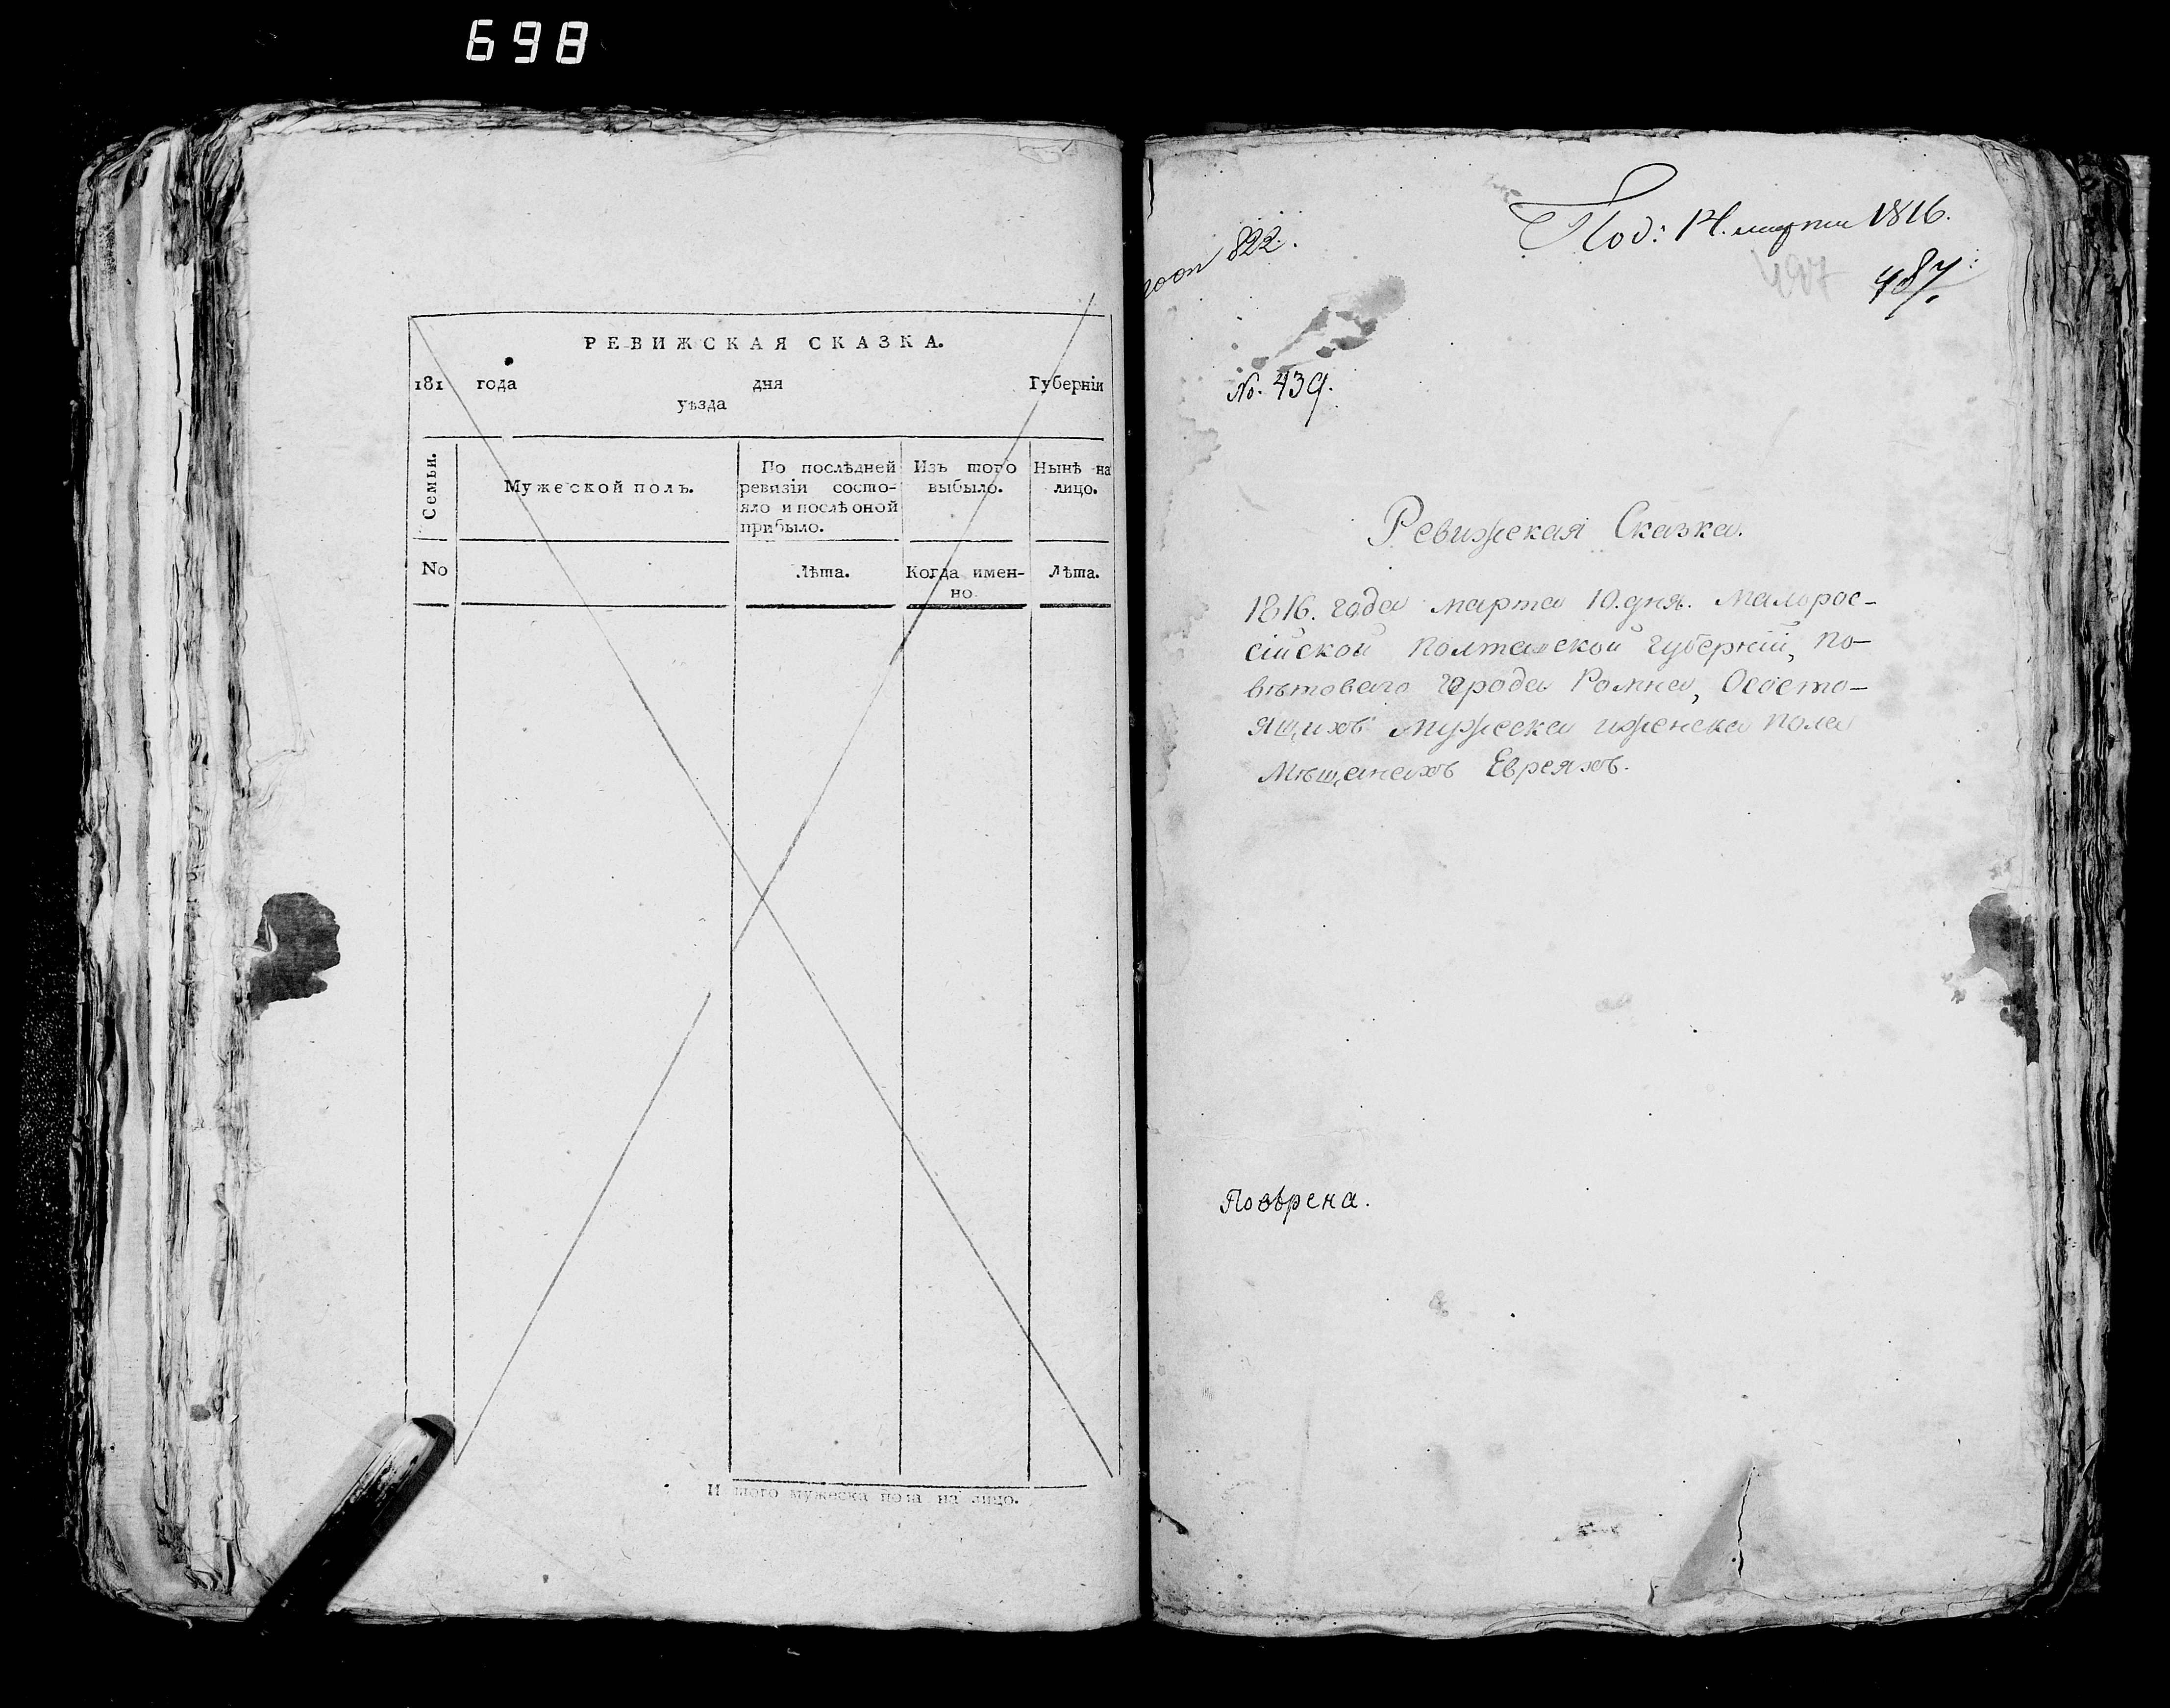 698
РЕВИЖСКАЯ СКАЗКА.
181 года дня Губерніи
уѣзда
Семьи.
Мужеской полъ.
По послѣдней ревизіи состо-
яло и послѣ оной прибыло.
Изъ того выбыло.
Нынѣ на лицо.
No
Лѣта.
Когда имен-
но.
Лѣта.
И того мужеска пола на лицо.
822.
Под: 14. марта 1816.
487
No. 439.
Ревижская Сказка.
1816. года марта 10. дня. Малорос-
сійской Полтавской губерніи, по-
вѣтоваго города Ромна, Осостo-
ящихъ мужеска иженска пола
Мѣщанахъ Евреяхъ.
Повѣрена.